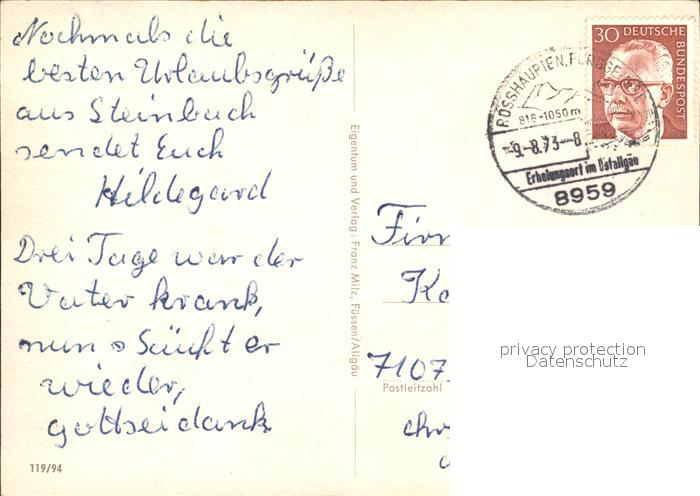 Nochmals die
besten Urlaubsgrüße
aus Steinbach
sendet Euch
Hildegard
Drei Tage war der
Vater krank,
nun er
wieder,
gottseidank.
119/94
Eigentum und Verlag: Franz Milz, Füssen/Allgäu
30 DEUTSCHE
BUNDESPOST
ROSSHAUPTEN,
816-1050m
-9.-8.73-8
Erholungsort im Ostallgäu
8959
Firm
Ka
7107
Postleitzahl
privacy protection
Datenschutz